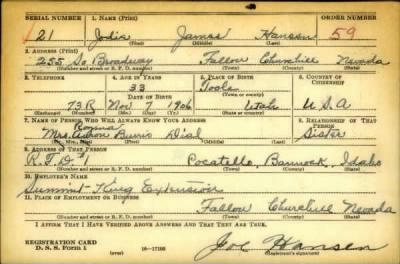 SERIAL NUMBER 1. NAME (Print) ORDER NUMBER
21 James Hansen 59
(First) (Middle) (Last)
2. ADDRESS (Print)
255 So Broadway Fallon Churchill Nevada
(Number and street or R. F. D. number) (Town) (County) (State)
3. TELEPHONE 4. AGE IN YEARS 5. PLACE OF BIRTH 6. COUNTRY OF CITIZENSHIP
33 Tooele
DATE OF BIRTH (Town or county)
73R Nov 7 1906 Utah U.S.A
(Exchange) (Number) (Mo.) (Day) (Yr.) (State or country)
7. NAME OF PERSON WHO WILL ALWAYS KNOW YOUR ADDRESS 8. RELATIONSHIP OF THAT PERSON
Mrs. Dial Sister
(Mr., Mrs., Miss) (First) (Middle) (Last)
9. ADDRESS OF THAT PERSON
R.F.D #1 Pocatello, Bannock, Idaho
(Number and street or R. F. D. number) (Town) (County) (State)
10. EMPLOYER'S NAME
Summit King Extension
11. PLACE OF EMPLOYMENT OR BUSINESS
Fallon Churchill Nevada
(Number and street or R. F. D. number) (Town) (County) (State)
I AFFIRM THAT I HAVE VERIFIED ABOVE ANSWERS AND THAT THEY ARE TRUE.
REGISTRATION CARD
D. S. S. Form 1 (over) 16-17105 Joe Hansen
(Registrant's signature)